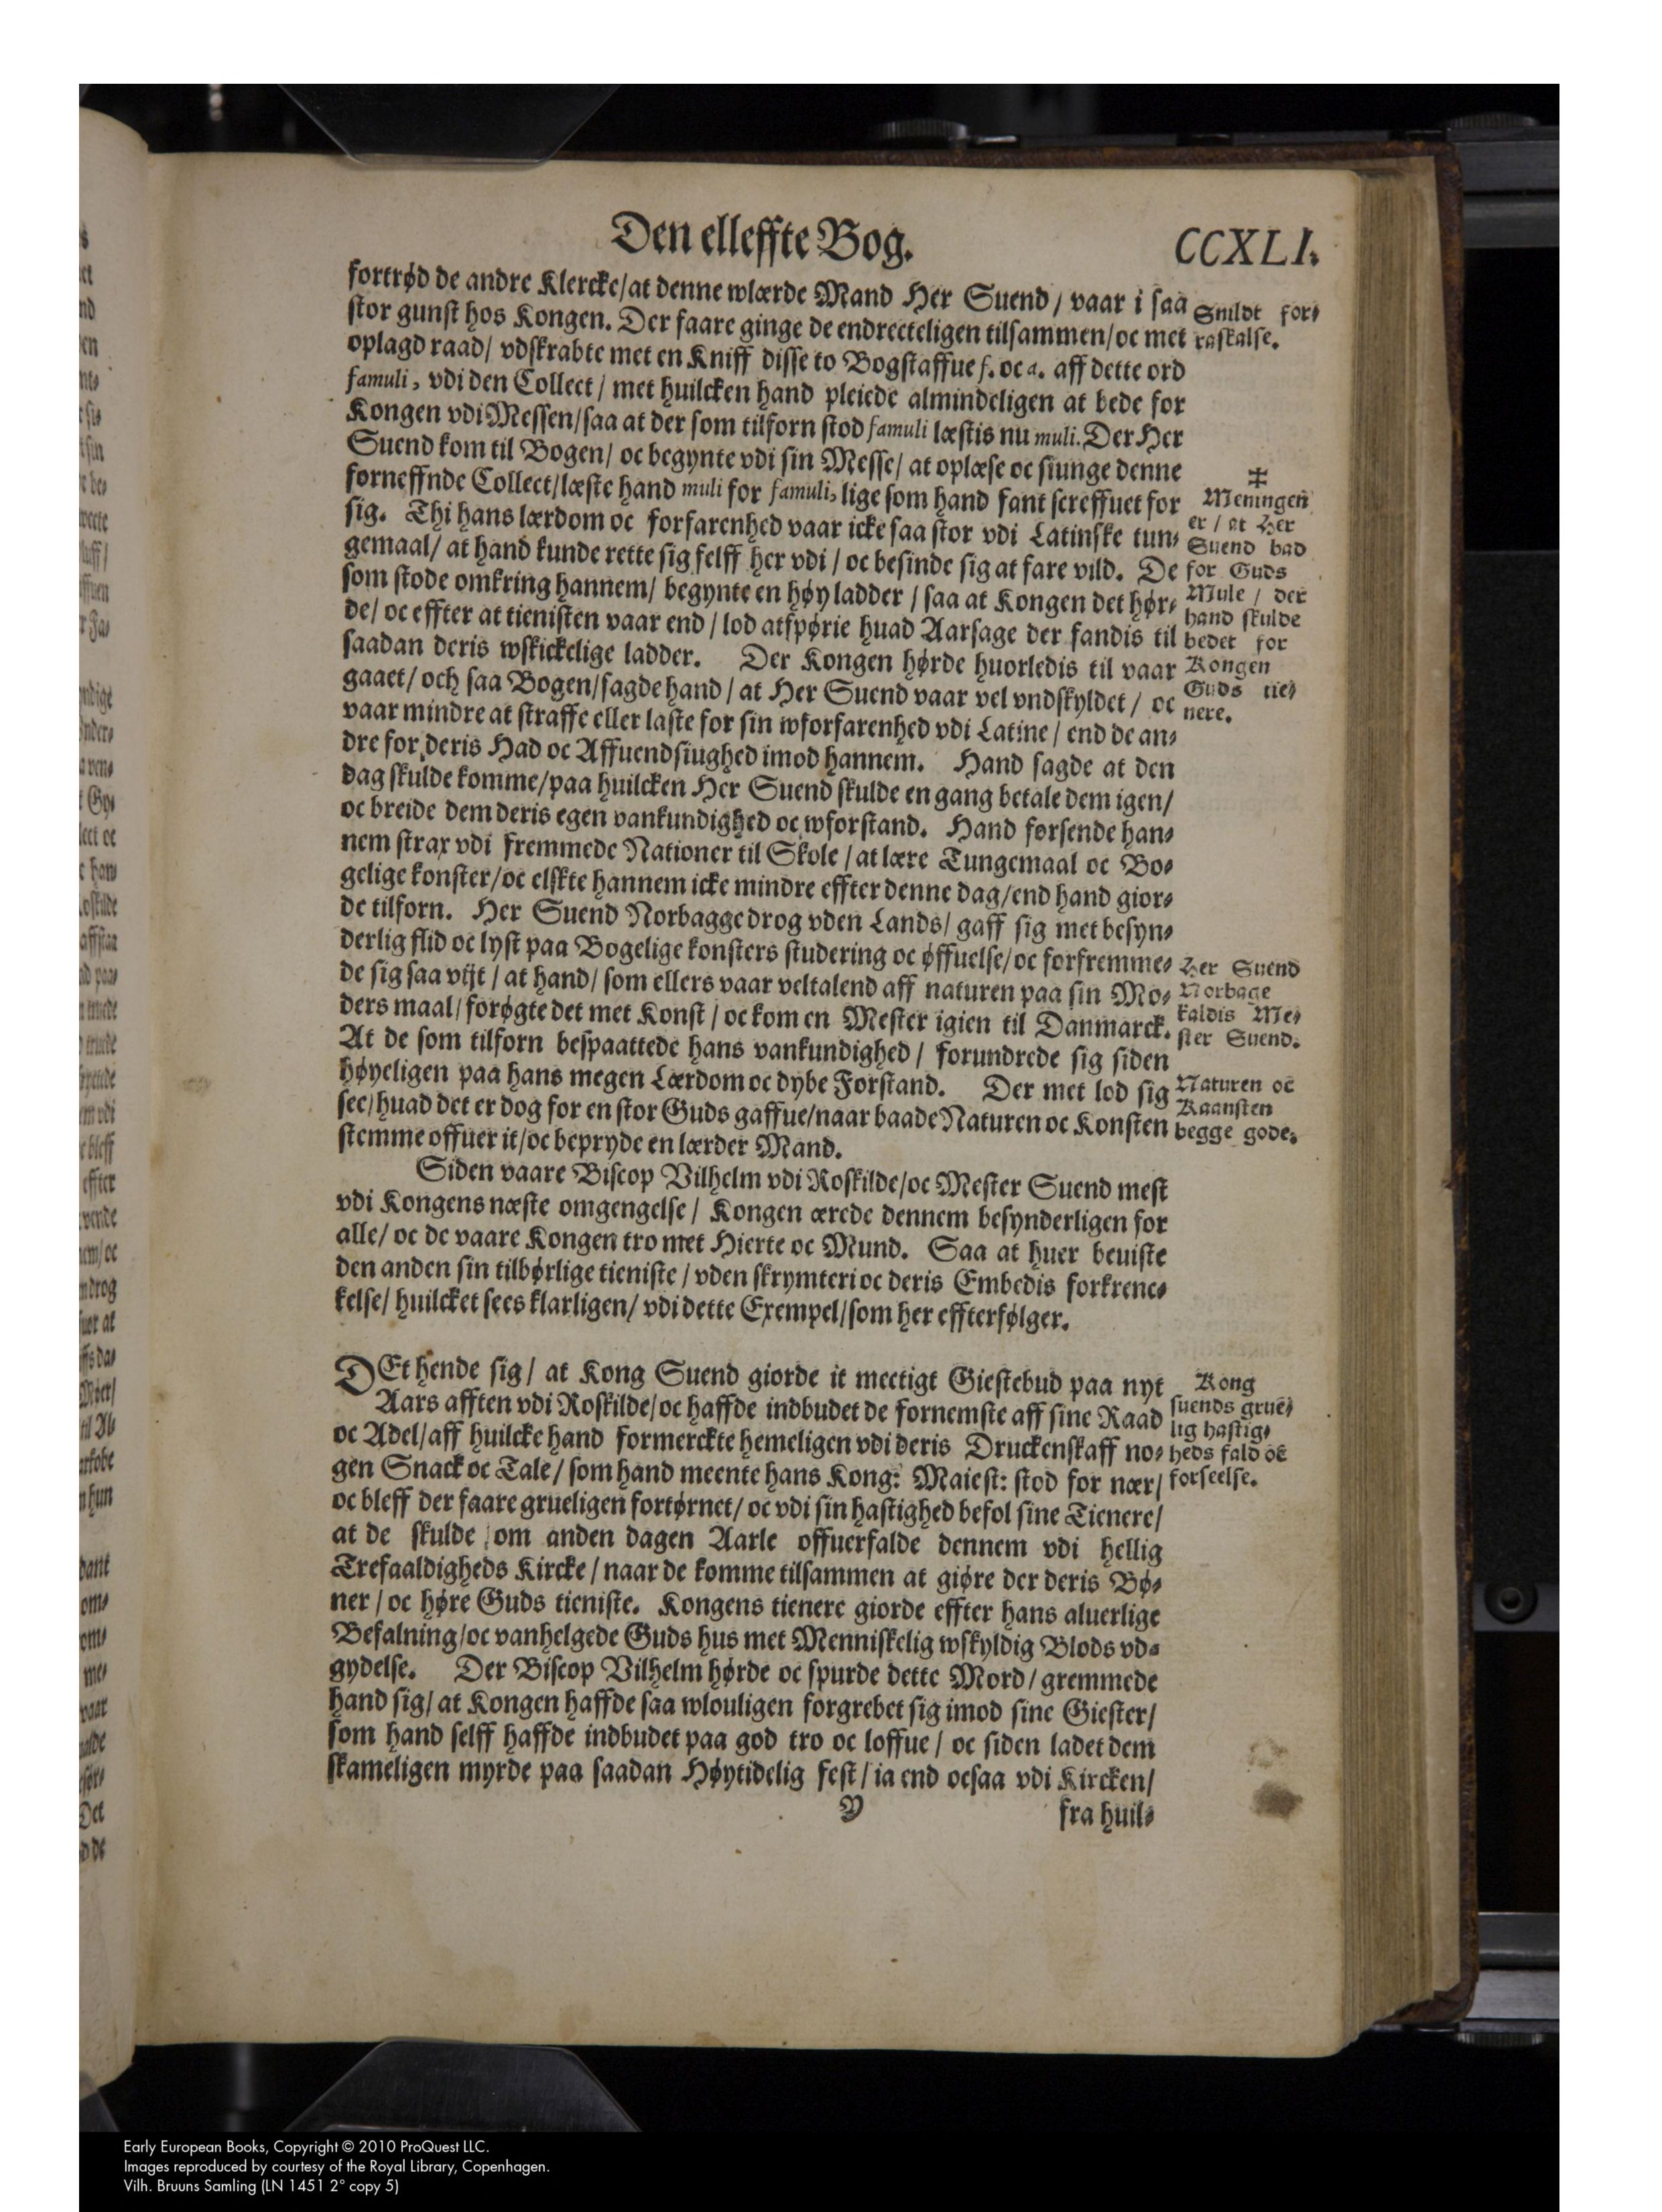 Den elleffte Bog.
CCXLI.
fortrød de andre Klercke/at denne wlærde Mand Her Suend / vaar i saa
stor gunst hos Kongen. Der faare ginge de endrecteligen tilsammen/oc met
oplagd raad/ vdskrabte met en Kniff disse to Bogstaffue f. oc a. aff dette ord
famuli, vdi den Collect / met huilcken hand pleiede almindeligen at bede for
Kongen vdi Messen/saa at der som tilforn stod famuli læstis nu muli. Der Her
Suend kom til Bogen/ oc begynte vdi sin Messe/ at oplæse oc siunge denne
forneffnde Collect/læste hand muli for famuli, lige som hand fant screffuet for
sig. Thi hans lærdom oc forfarenhed vaar icke saa stor vdi Latinske tun⸗
gemaal/ at hand kunde rette sig selff her vdi / oc besinde sig at fare vild. De
som stode omkring hannem/ begynte en høy ladder / saa at Kongen det hør⸗
de/ oc effter at tienisten vaar end / lod atspørie huad Aarsage der fandis til
saadan deris wskickelige ladder. Der Kongen hørde huorledis til vaar
gaaet/ och saa Bogen/sagde hand / at Her Suend vaar vel vndskyldet / oc
vaar mindre at straffe eller laste for sin wforfarenhed vdi Latine / end de an⸗
dre for deris Had oc Affuendsiughed imod hannem. Hand sagde at den
dag skulde komme/paa huilcken Her Suend skulde en gang betale dem igen/
oc breide dem deris egen vankundighed oc wforstand. Hand førsende han⸗
nem strax vdi fremmede Nationer til Skole / at lære Tungemaal oc Bo⸗
gelige konster/oc elskte hannem icke mindre effter denne dag/end hand gior⸗
de tilforn. Her Suend Norbagge drog vden Lands/ gaff sig met besyn⸗
derlig flid oc lyst paa Bogelige konsters studering oc øffuelse/oc forfremme⸗
de sig saa vijt / at hand/ som ellers vaar veltalend aff naturen paa sin Mo⸗
ders maal/ forøgte det met Konst / oc kom en Mester igien til Danmarck.
At de som tilforn bespaattede hans vankundighed / forundrede sig siden
høyeligen paa hans megen Lærdom oc dybe Forstand. Der met lod sig
see/huad det er dog for en stor Guds gaffue/naar baade Naturen oc Konsten
stemme offuer it/oc bepryde en lærder Mand.
Siden vaare Biscop Vilhelm vdi Roskilde/oc Mester Suend mest
vdi Kongens næste omgengelse / Kongen ærede dennem besynderligen for
alle/ oc de vaare Kongen tro met Hierte oc Mund. Saa at huer beuiste
den anden sin tilbørlige tieniste / vden skrymteri oc deris Embedis forkrenc⸗
kelse/ huilcket sees klarligen/ vdi dette Exempel/som her effterfølger.
DEt hende sig/ at Kong Suend giorde it mectigt Giestebud paa nyt
Aars afften vdi Roskilde/oc haffde indbudet de fornemste aff sine Raad
oc Adel/aff huilcke hand formerckte hemeligen vdi deris Druckenskaff no⸗
gen Snack oc Tale/ som hand meente hans Kong: Maiest: stod for nær/
oc bleff der faare grueligen fortørnet/ oc vdi sin hastighed befol sine Tienere/
at de skulde om anden dagen Aarle offuerfalde dennem vdi hellig
Trefaaldigheds Kircke / naar de komme tilsammen at giøre der deris Bø⸗
ner / oc høre Guds tieniste. Kongens tienere giorde effter hans aluerlige
Befalning/oc vanhelgede Guds hus met Menniskelig wskyldig Blods vd⸗
gydelse. Der Biscop Vilhelm hørde oc spurde dette Mord / gremmede
hand sig/ at Kongen haffde saa wlouligen forgrebet sig imod sine Giester/
som hand selff haffde indbudet paa god tro oc loffue / oc siden ladet dem
skameligen myrde paa saadan Høytidelig fest / ia end ocsaa vdi Kircken/
Y
fra huil⸗
Snildt for⸗
raskalse.
‡
Meningen
er / at Her
Suend bad
for Guds
Mule / der
hand skulde
bedet for
Kongen
Guds tie⸗
nere.
Her Suend
Norbage
kaldis Me⸗
ster Suend.
Naturen oc
Kaansten
begge gode.
Kong
suends grue⸗
lig hastig⸗
heds fald oc
forseelse.
Early European Books, Copyright © 2010 ProQuest LLC.
Images reproduced by courtesy of the Royal Library, Copenhagen.
Vilh. Bruuns Samling (LN 1451 2° copy 5)